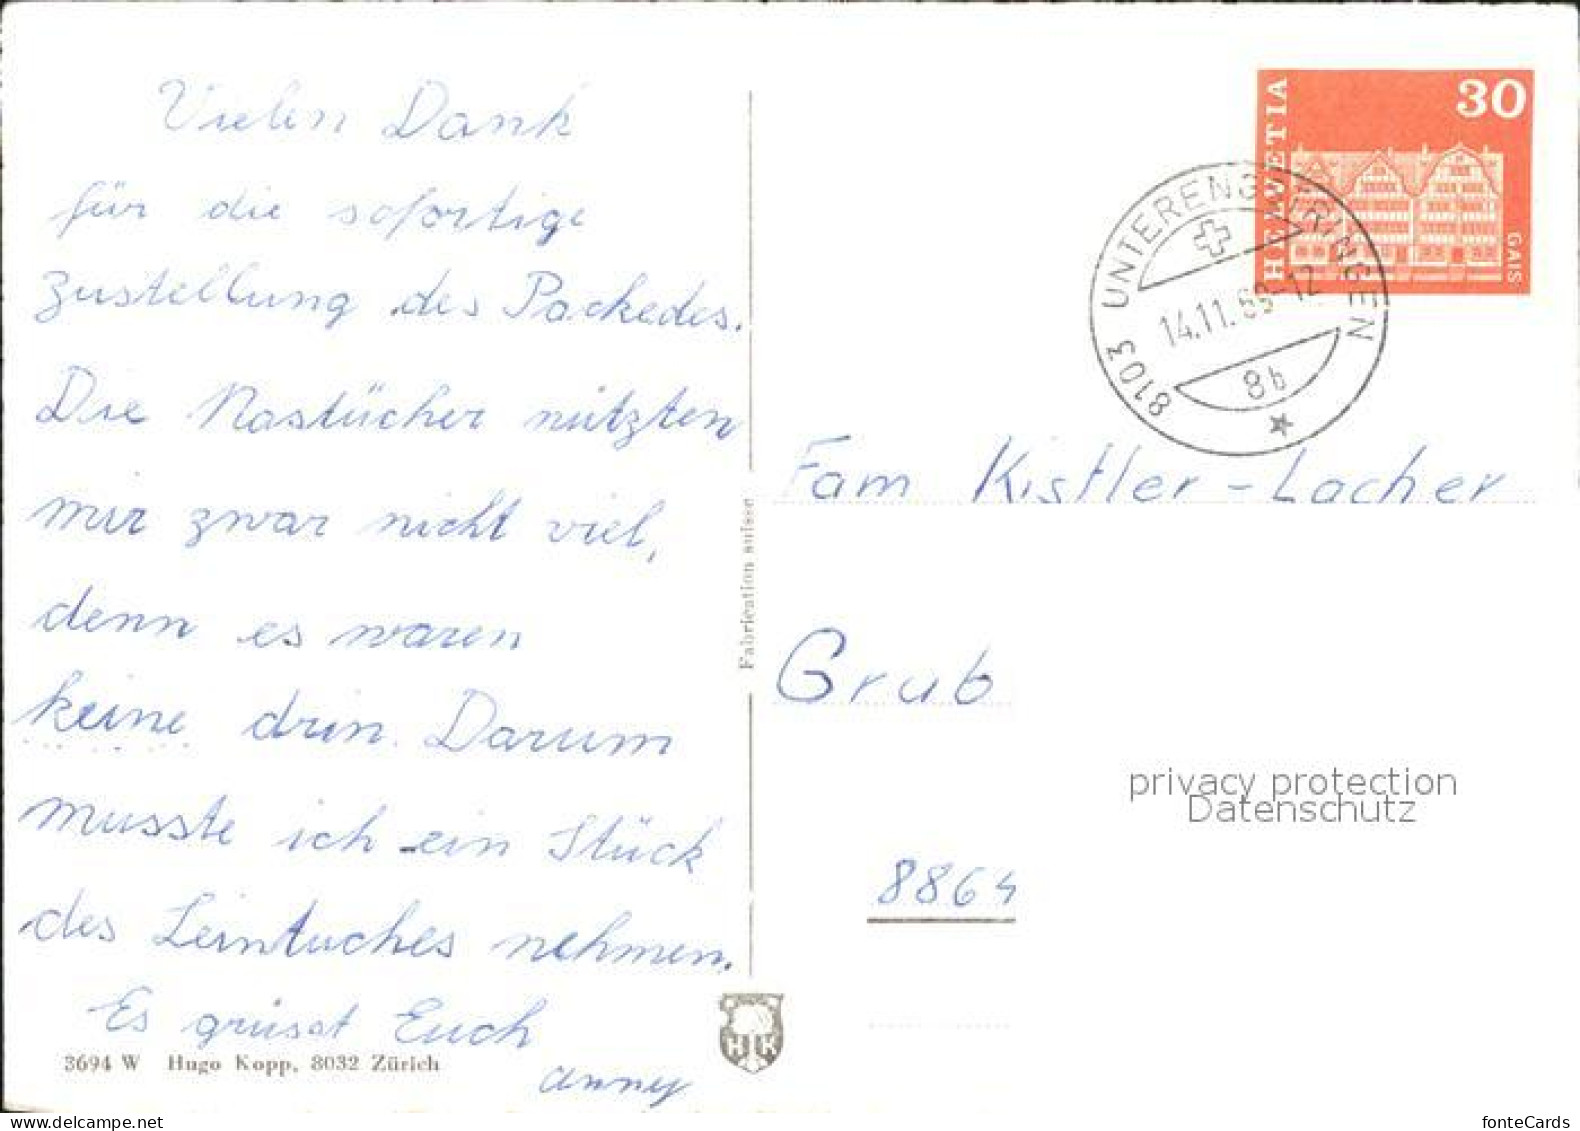 Vielen Dank
für die sofortige
Zustellung des Packedes.
Die Nastücher nützten
mir zwar nicht viel,
denn es waren
keine drin. Darum
musste ich ein Stück
des Leintuches nehmen.
Es grüsst Euch
Anny
3694 W Hugo Kopp, 8032 Zürich
Fabrication suisse
HK
HELVETIA
30
GAIS
8103 UNTERENGSTRINGEN
14.11.69-12
8b
Fam Kistler-Lacher
Grub
privacy protection
Datenschutz
8864
delcampe.net
fonteCards